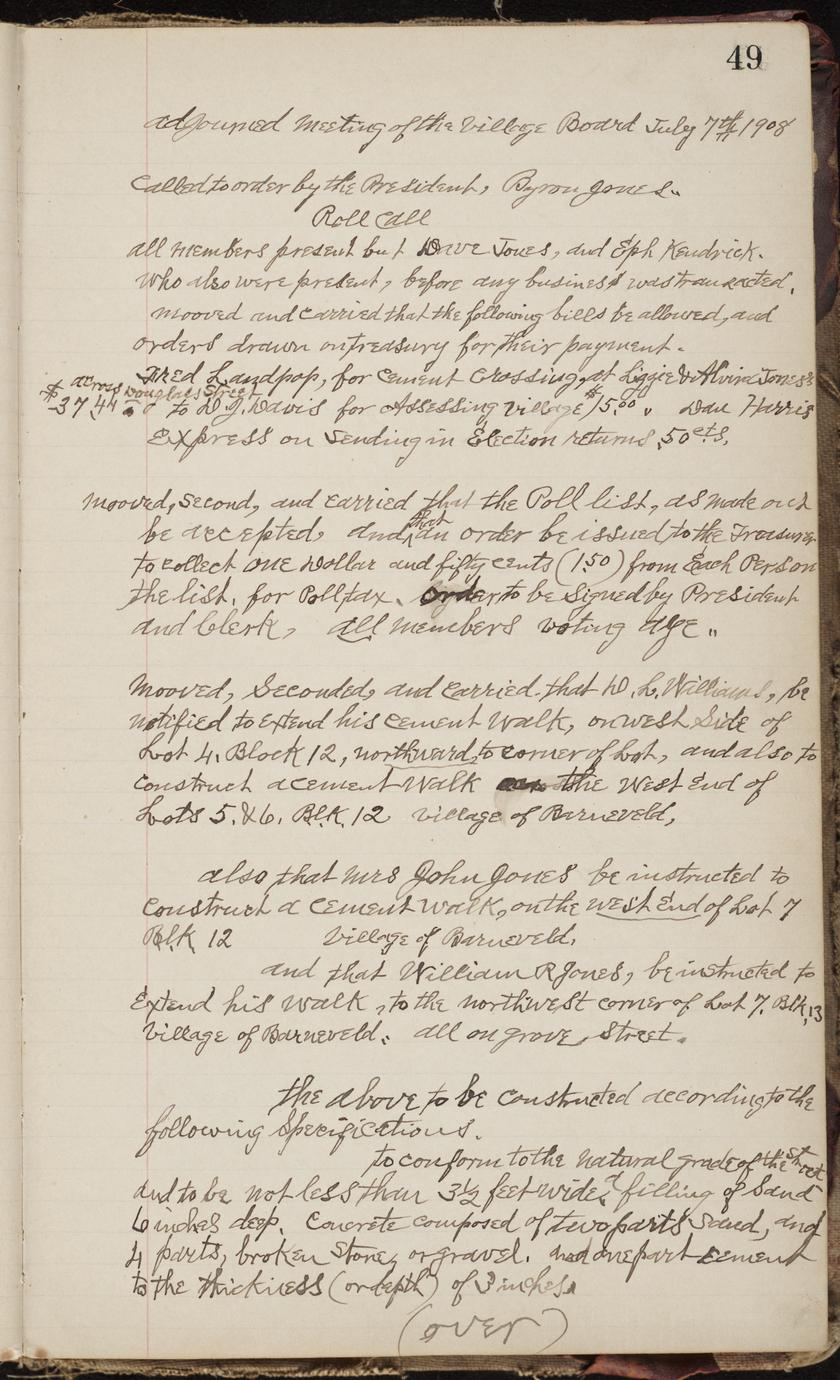 49
adjourned Meeting of the Village Board July 7th 1908
Called to order by the President, Byron Jones.
Roll Call
all members present but Dave Jones, and Eph Kendrick.
who also were present, before any business was transacted.
mooved and carried that the following bills be allowed, and
orders drawn on treasury for their payment.
Fred Landpop, for Cement Crossing, at Lizzie & Alvira Jones's
across Douglas Street
$37,44 to D. J. Davis for Assessing Village $15.00. Dan Harris
Express on Sending in Election returns .50 cts.
mooved, Second, and carried that the Poll list, as made out
be accepted, and that an order be issued to the Treasurer
to collect one Dollar and fifty cents (1.50) from Each Person
the list. for Poll tax. Order to be Signed by President
and Clerk, all members voting aye.
Mooved, Seconded, and Carried. that D. L. Williams, be
notified to Extend his Cement Walk, on west Side of
Lot 4. Block 12, northward, to corner of Lot, and also to
construct a cement Walk the West End of
Lots 5. & 6. Blk. 12 village of Barneveld,
also that Mrs John Jones be instructed to
Construct a Cement Walk, on the west End of Lot 7
Blk. 12 Village of Barneveld,
and that William R Jones, be instructed to
Extend his Walk, to the northwest corner of Lot 7. Blk. 13
Village of Barneveld. all on grove Street.
the above to be constructed according to the
following Specifications.
to conform to the natural grade of the street
and to be not less than 3½ feet wide, a filling of Sand
6 inches deep. Concrete composed of two parts Sand, and
4 parts, broken Stone, or gravel. and one part cement
to the thickness (or depth) of 3 inches
(over)